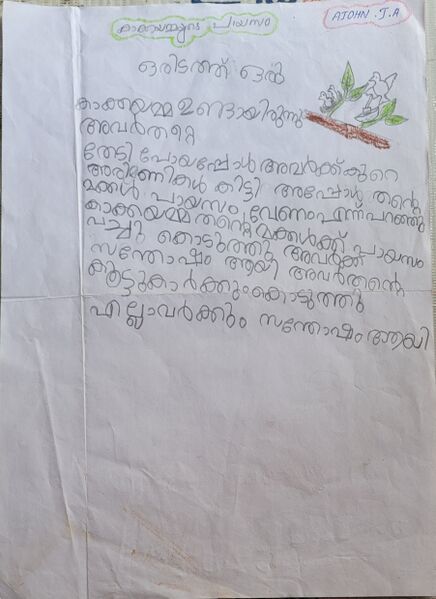 കാക്കയമ്മയുടെ പായസം
AJOHN .J.A
ഒരിടത്ത് ഒരു
കാക്കയമ്മ ഉണ്ടായിരുന്നു
അവർതറ്റെ
തേടി പോയപ്പോൾ അവർക്ക് കുറെ
അരിമണികൾ കിട്ടി അപ്പോൾ തന്റെ
മക്കൾ പായസം വേണംഎന്ന്പറഞ്ഞു
കാക്കയമ്മ തന്റെ മക്കൾക്ക് പായസം
വച്ച് കൊടുത്തു അവർക്ക്
സന്തോഷം ആയി അവർതന്റെ
കൂട്ടുകാർക്കുംകൊടുത്തു
എല്ലാവർക്കും സന്തോഷം ആയി